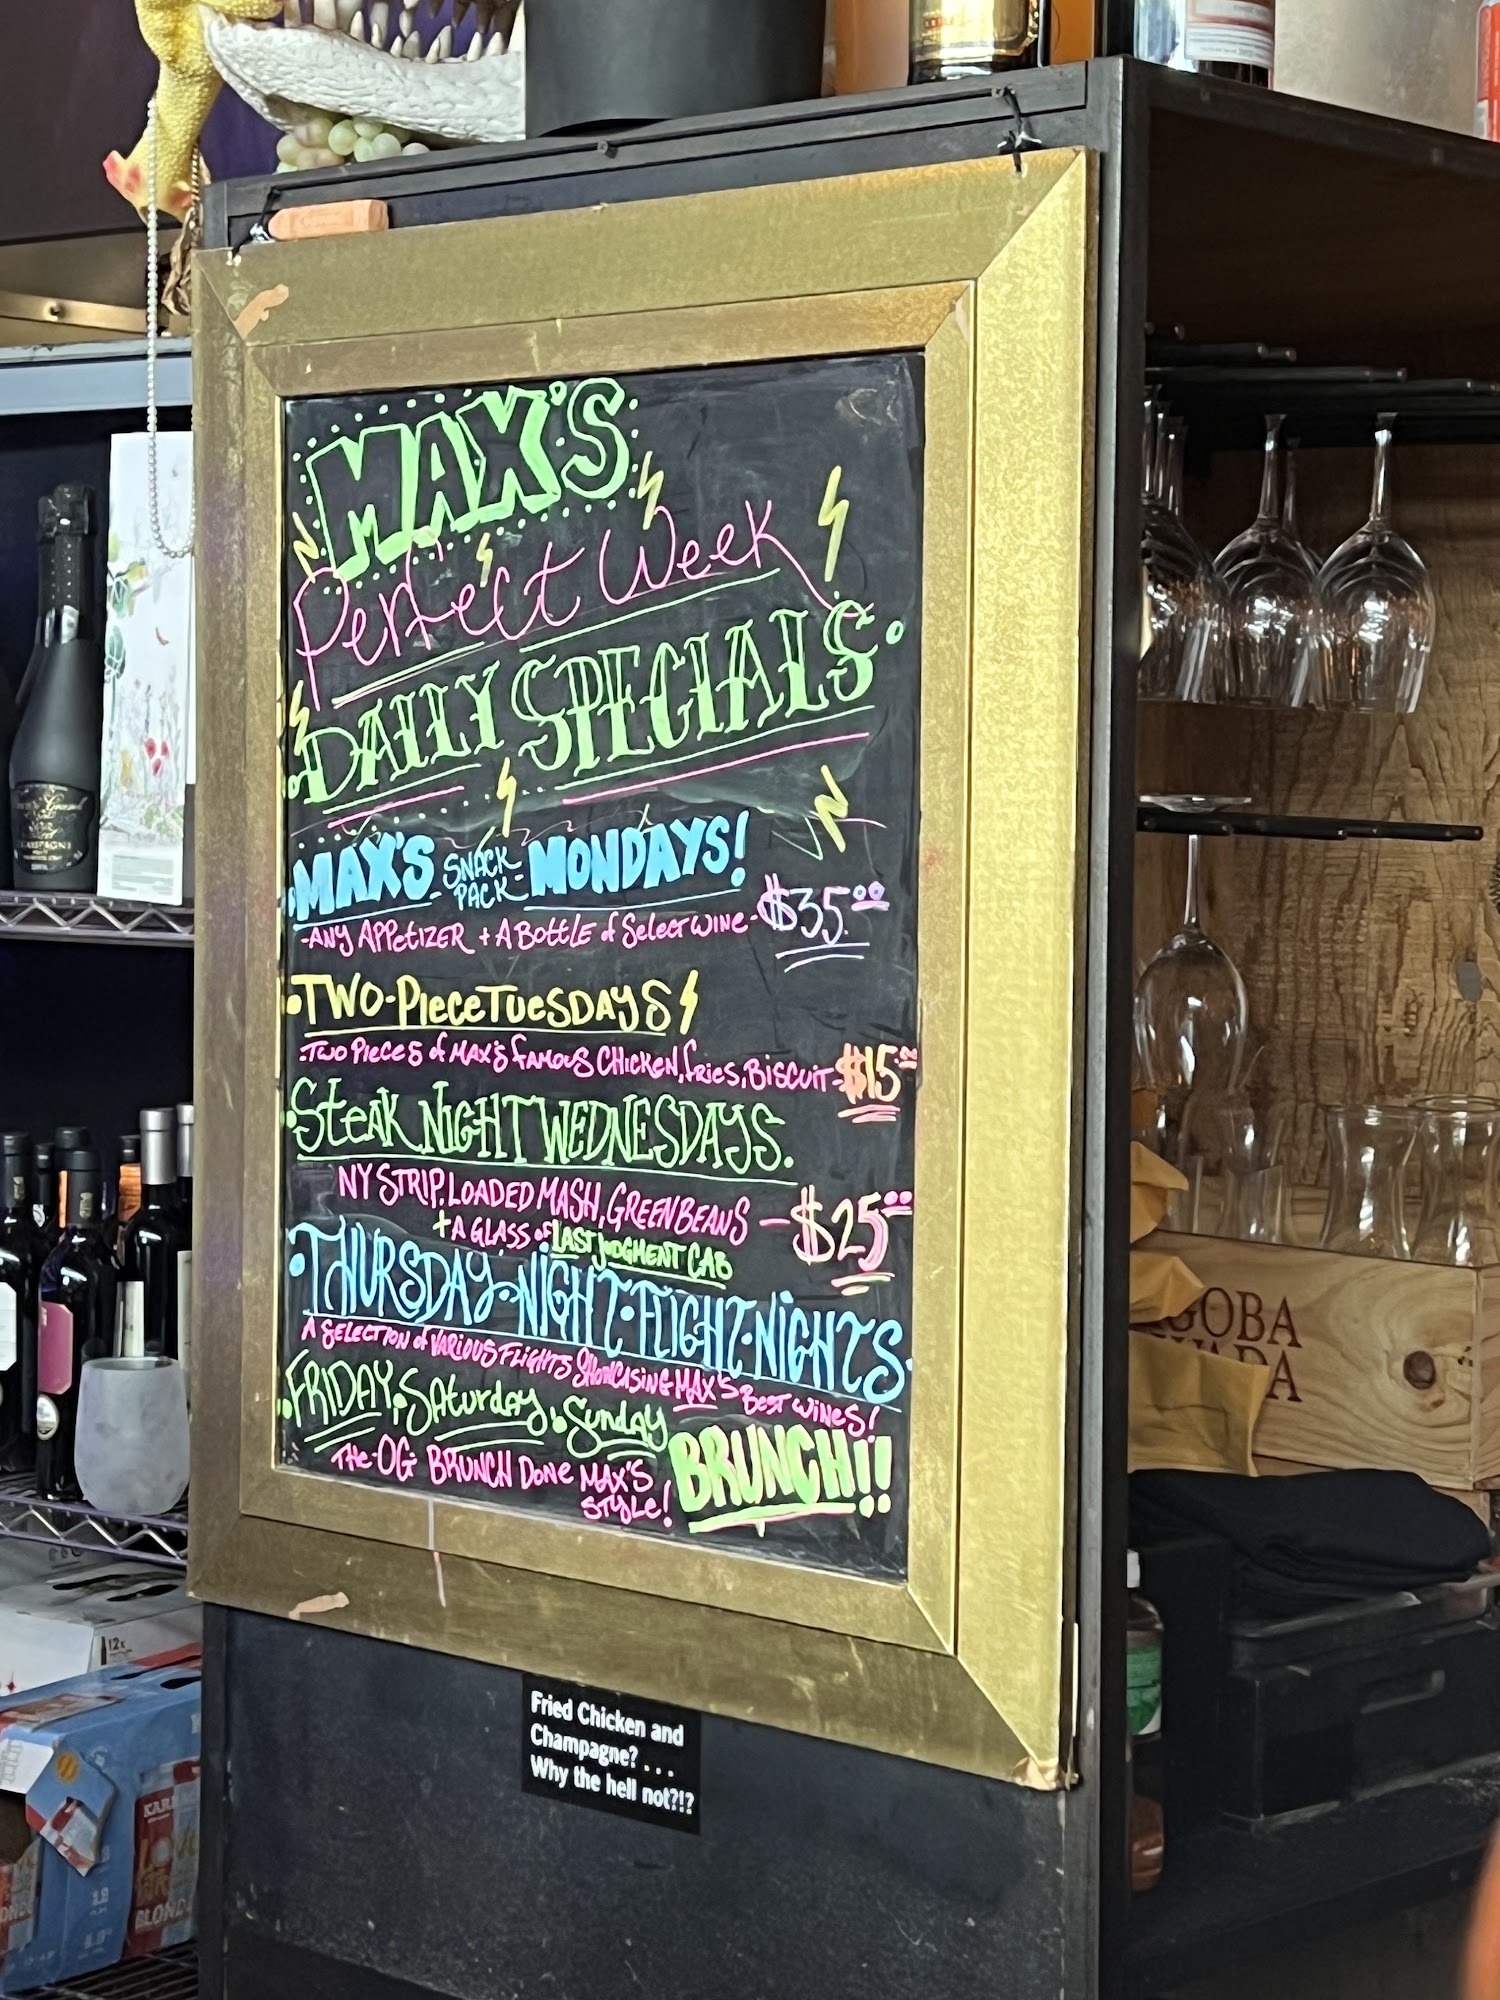 MAX'S
Perfect Week
DAILY SPECIALS
MAX'S SNACK PACK MONDAYS!
-ANY APPETIZER + A BOTTLE of Select WINE- $35.00
TWO-PIECE TUESDAYS
-TWO PIECES of MAX'S FAMOUS CHICKEN, fries, BISCUIT- $15.
Steak NIGHT WEDNESDAYS.
NY STRIP, LOADED MASH, GREEN BEANS — $25.00
+ A GLASS of LAST JUDGMENT CAB
THURSDAY·NIGHT·FLIGHT·NIGHTS
A SELECTION of VARIOUS FLIGHTS SHOWCASING MAX'S BEST WINES!
FRIDAY, Saturday, Sunday
BRUNCH!!
THE-OG BRUNCH DONE MAX'S
STYLE!
Fried Chicken and
Champagne? . . .
Why the hell not?!?
12x
BLOND